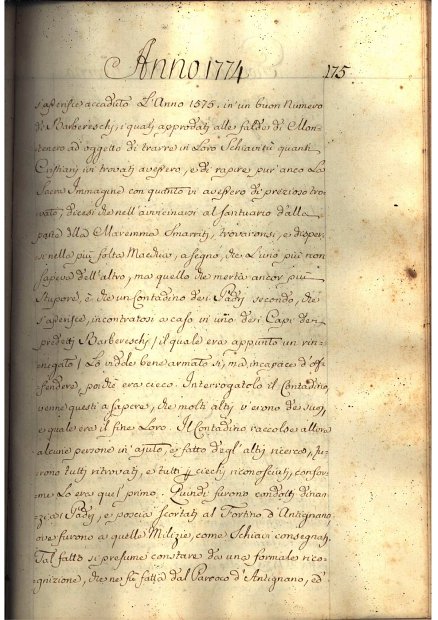 Anno 1774
175
s'asserisce accaduto L'Anno 1575. in un buon Numero
di Barbereschj, i qualj approdatj alle falde di Mon-
tenero ad oggetto di trarre in Loro Schiavitù quanti
Cristianj ivi trovatj avessero, e di rapire pur' anco La
Sacra Immagine con quanto vi avessero di prezioso tro-
vato, dicesi che nell'avvicinarsi al santuario dalla
parte della Maremma Smarritj, trovaronsi, e disper-
si nella più folta Macchia, a segno, che L'uno più non
sapeva dell'altro, ma quello che merta ancor più
Stupore, è che un Contadino dei Padrj secondo, che
s'asserisce, incontratosi a caso in uno dei Capi dei
predettj Barbereschj / il quale era appunto un rin-
negato / Lo vidde bene armato sì, ma incapace d'off-
endere, poiche era cieco. Interrogatolo il Contadino,
venne questi a sapere, che molti altrj v'erono de suoj,
e quale era il fine Loro. Il Contadino raccolse allora
alcune persone in ajuto, e fatto degl' altrj ricerca, fu-
rono tuttj ritrovatj, e tutti p ciechj riconosciutj, confor-
me Lo era quel primo. Quindi furono condottj dinan-
zi ai Padrj, e poscia scortatj al Fortino d'Antignano
ove furono a quelle Milizie, come Schiavi consegnatj.
Tal fatto si presume constare da una formale rico-
gnizione, che ne fu fatta dal Paroco d'Antignano, ed'